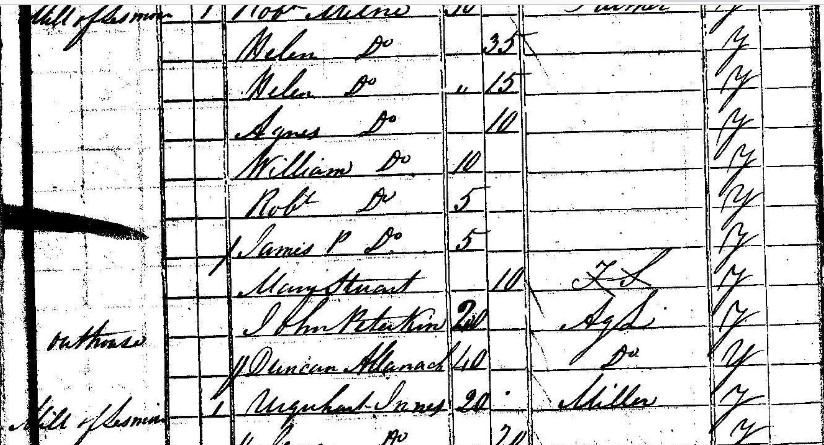 Mill of Lesmin 1 Robt Milne Farmer y
Helen Do 35 y
Helen Do " 15 y
Agnes Do 10 y
William Do 10 y
Robt Do 5 y
James P Do 5 y
Mary Stuart 10 F S y
John Peterkin 20 Ag L y
outhouse
Duncan Allanach 40 Do y
Mill of Lesmin 1 Urquhart Innes 20 Miller y
" Do 20 y